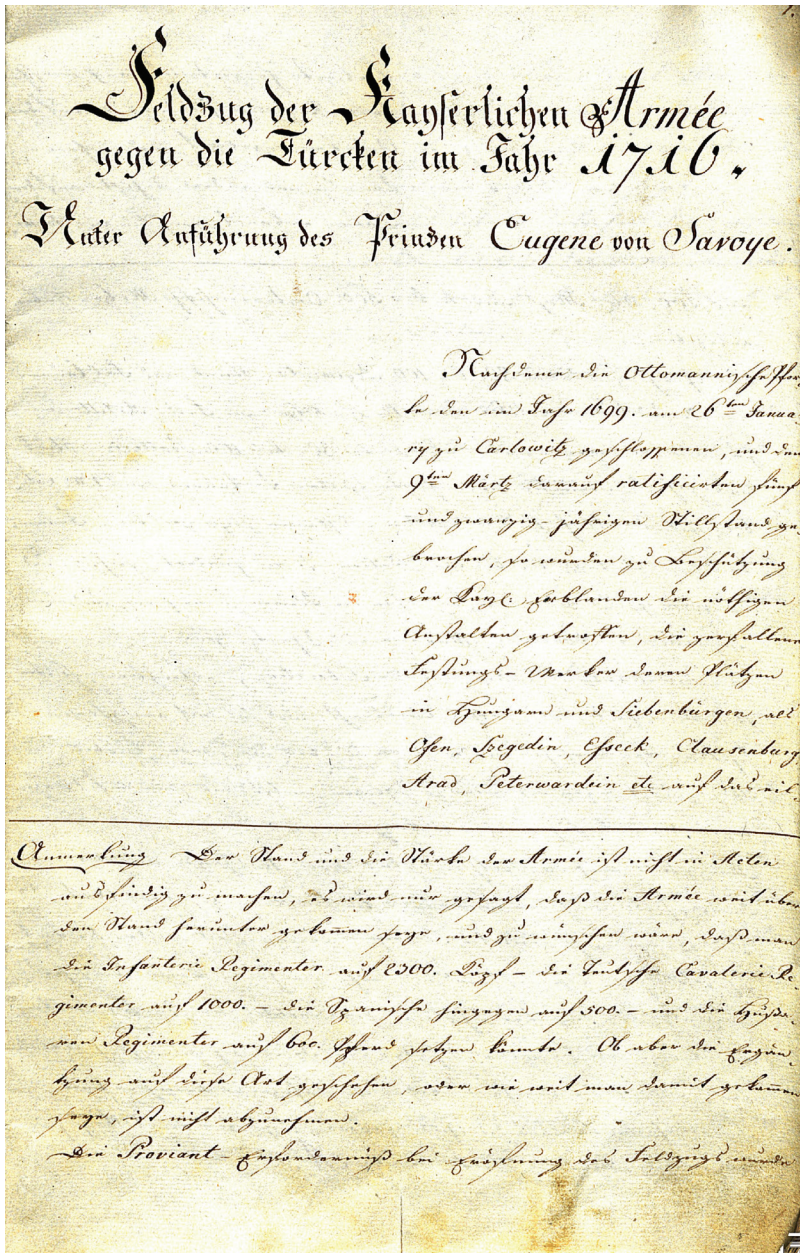 1.
Feldzug der Kayserlichen Armée
gegen die Türcken im Jahr 1716.
Unter Anführung des Prinzen Eugene von Savoye.
Nachdeme die Ottomannische Pfor-
te den im Jahr 1699. am 26ten Janua-
ry zu Carlowitz geschlossenen, und den
9ten Märtz darauf ratificirten fünf
und zwanzig-jährigen Stillstand ge-
brochen, so wurden zu Beschützung
der Kayl. Erblanden die nöthigen
Anstalten getroffen, die zerfallene
Festungs-Werker deren Plätzen
in Hungarn und Siebenbürgen, als
Ofen, Szegedin, Esseek, Clausenburg,
Arad, Peterwardein etc auf das eil-
Anmerkung Der Stand und die Stärke der Armée ist nicht in Acten
ausfindig zu machen, es wird nur gesagt, daß die Armée weit über
den Stand herunter gekommen seye, und zu wünschen wäre, daß man
die Infanterie Regimenter auf 2300. Köpf - die Teutsche Cavalerie Re-
gimenter auf 1000. - die Spanische hingegen auf 500. - und die Hußa-
ren Regimenter auf 600. Pferd setzen könnte. Ob aber die Ergän-
tzung auf diese Art geschehen, oder wie weit man damit gekommen
seye, ist nicht abzunehmen.
Die Proviant-Erfordernüß bei Eröfnung des Feldzugs wurde